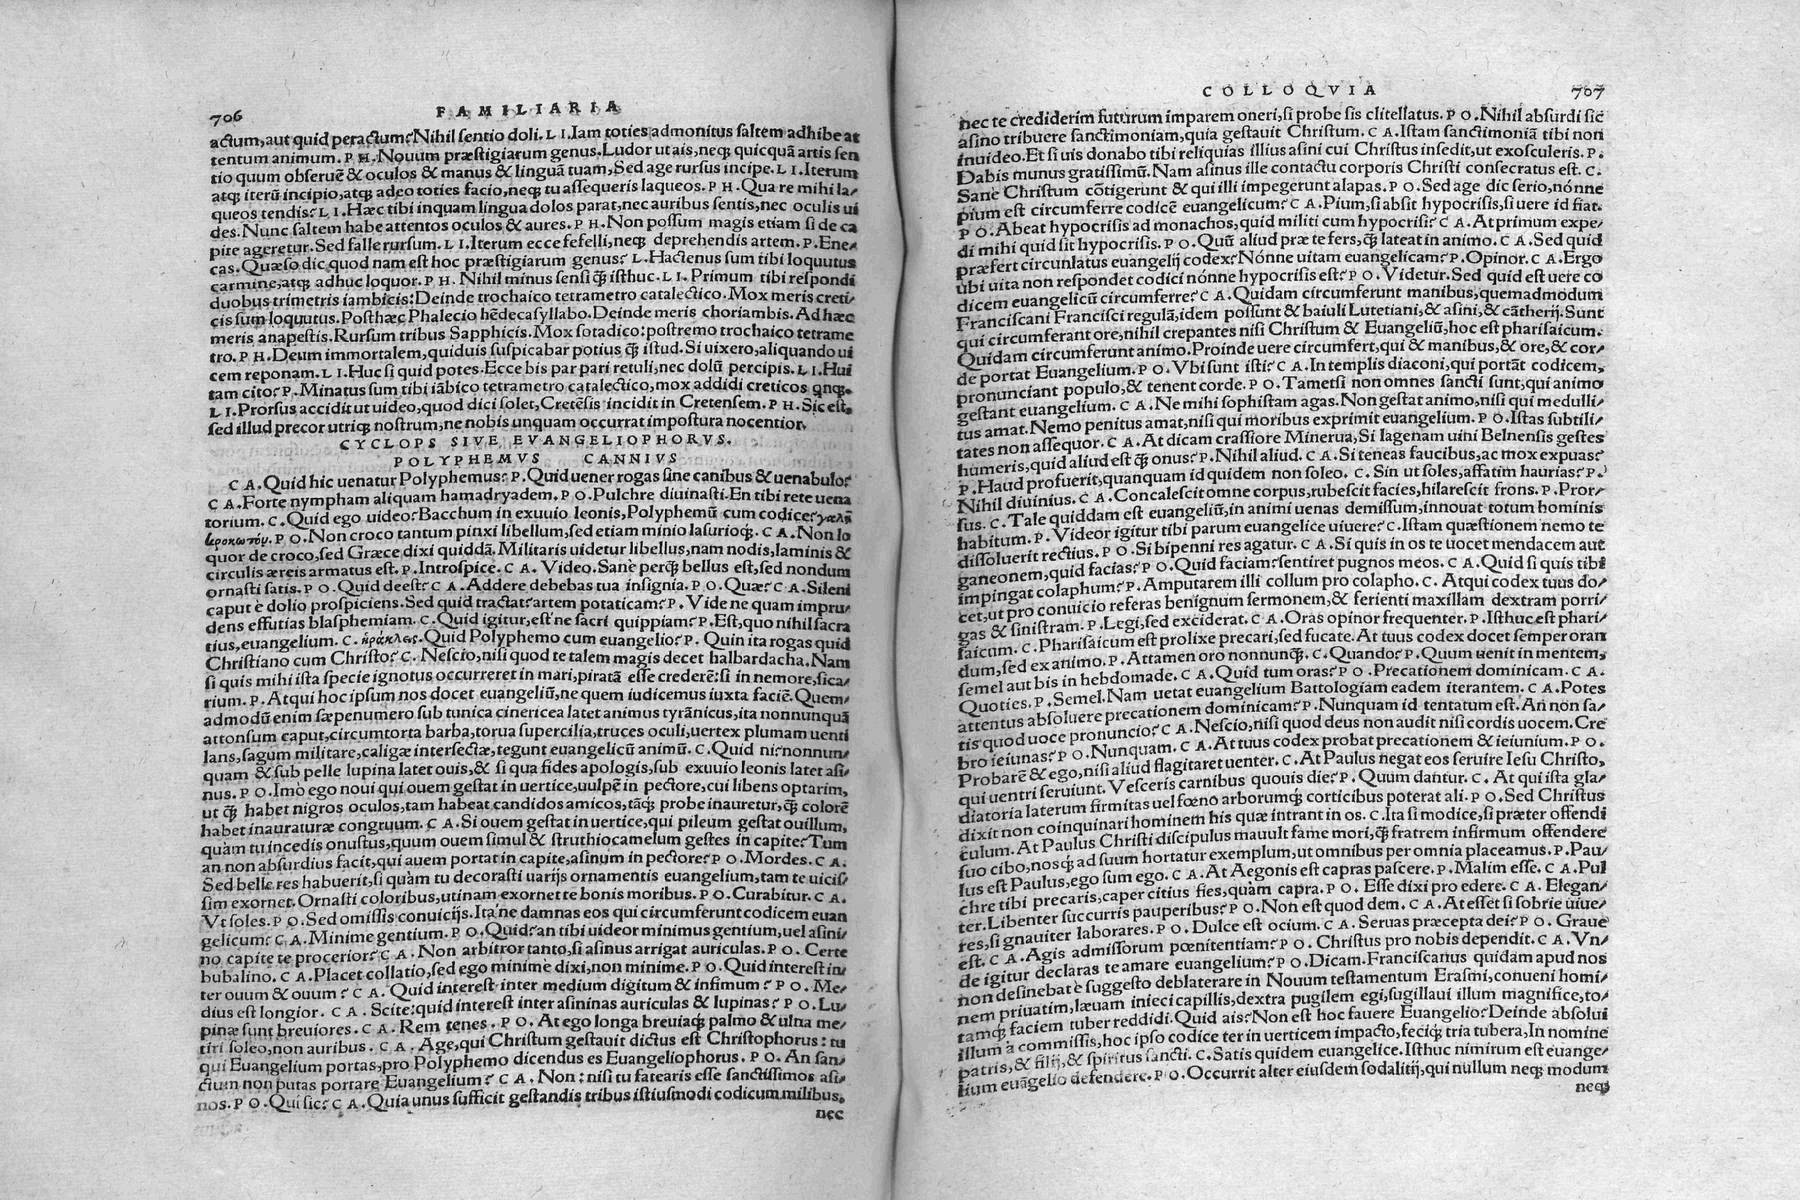 706 FAMILIARIA
actum,aut quid peractum? Nihil sentio doli. L I. Iam toties admonitus saltem adhibe at
tentum animum. P H. Nouum præstigiarum genus. Ludor ut ais, neq; quicquã artis sen
tio quum obseruẽ & oculos & manus & linguã tuam, Sed age rursus incipe. L I. Iterum
atq; iterũ incipio, atq; adeo toties facio, neq; tu assequeris laqueos. P H. Qua re mihi la⸗
queos tendis? L I. Hæc tibi inquam lingua dolos parat, nec auribus sentis, nec oculis ui
des. Nunc saltem habe attentos oculos & aures. P H. Non possum magis etiam si de ca
pite ageretur. Sed falle rursum. L I. Iterum ecce fefelli, neq; deprehendis artem. P. Ene⸗
cas. Quæso dic quod nam est hoc præstigiarum genus? L. Hactenus sum tibi loquutus
carmine, atq; adhuc loquor. P H. Nihil minus sensi q̃ isthuc. L I. Primum tibi respondi
duobus trimetris iambicis: Deinde trochaico tetrametro catalectico. Mox meris creti⸗
cis sum loquutus. Posthæc Phalecio hẽdecasyllabo. Deinde meris choriambis. Ad hæc
meris anapestis. Rursum tribus Sapphicis. Mox sotadico: postremo trochaico tetrame
tro. P H. Deum immortalem, quiduis suspicabar potius q̃ istud. Si uixero, aliquando ui
cem reponam. L I. Huc si quid potes. Ecce bis par pari retuli, nec dolũ percipis. L I. Hui
tam cito? P. Minatus sum tibi iãbico tetrametro catalectico, mox addidi creticos qnq;.
L I. Prorsus accidit ut uideo, quod dici solet, Cretẽsis incidit in Cretensem. P H. Sic est,
sed illud precor utriq; nostrum, ne nobis unquam occurrat impostura nocentior.
CYCLOPS SIVE EVANGELIOPHORVS.
POLYPHEMVS CANNIVS
C A. Quid hic uenatur Polyphemus? P. Quid uener rogas sine canibus & uenabulo?
C A. Forte nympham aliquam hamadryadem. P O. Pulchre diuinasti. En tibi rete uena
torium. C. Quid ego uideo? Bacchum in exuuio leonis, Polyphemũ cum codice? γαλῆ
κροκωτόν. P O. Non croco tantum pinxi libellum, sed etiam minio lasurioq;. C A. Non lo
quor de croco, sed Græce dixi quiddã. Militaris uidetur libellus, nam nodis, laminis &
circulis æreis armatus est. P. Introspice. C A. Video. Sane perq̃ bellus est, sed nondum
ornasti satis. P O. Quid deest? C A. Addere debebas tua insignia. P O. Quæ? C A. Sileni
caput è dolio prospiciens. Sed quid tractat? artem potaticam? P. Vide ne quam impru⸗
dens effutias blasphemiam. C. Quid igitur, est ne sacri quippiam? P. Est, quo nihil sacra
tius, euangelium. C. ἡράκλεις. Quid Polyphemo cum euangelio? P. Quin ita rogas quid
Christiano cum Christo? C. Nescio, nisi quod te talem magis decet halbardacha. Nam
si quis mihi ista specie ignotus occurreret in mari, piratã esse crederẽ: si in nemore, sica⸗
rium. P. Atqui hoc ipsum nos docet euangeliũ, ne quem iudicemus iuxta faciẽ. Quem⸗
admodũ enim sæpenumero sub tunica cinericea latet animus tyrãnicus, ita nonnunquã
attonsum caput, circumtorta barba, torua supercilia, truces oculi, uertex plumam uenti
lans, sagum militare, caligæ intersectæ, tegunt euangelicũ animũ. C. Quid ni? nonnun⸗
quam & sub pelle lupina latet ouis, & si qua fides apologis, sub exuuio leonis latet asi⸗
nus. P O. Imò ego noui qui ouem gestat in uertice, uulpẽ in pectore, cui libens optarim,
ut q̃ habet nigros oculos, tam habeat candidos amicos, tãq; probe inauretur, q̃ colorẽ
habet inauraturæ congruum. C A. Si ouem gestat in uertice, qui pileum gestat ouillum,
quàm tu incedis onustus, quum ouem simul & struthiocamelum gestes in capite? Tum
an non absurdius facit, qui auem portat in capite, asinum in pectore? P O. Mordes. C A.
Sed belle res habuerit, si quàm tu decorasti uarijs ornamentis euangelium, tam te uicis⸗
sim exornet. Ornasti coloribus, utinam exornet te bonis moribus. P O. Curabitur. C A.
Vt soles. P O. Sed omissis conuicijs. Ita'ne damnas eos qui circumferunt codicem euan
gelicum? C A. Minime gentium. P O. Quid? an tibi uideor minimus gentium, uel asini⸗
no capite te procerior? C A. Non arbitror tanto, si asinus arrigat auriculas. P O. Certe
bubalino. C A. Placet collatio, sed ego minime dixi, non minime. P O. Quid interest in⸗
ter ouum & ouum? C A. Quid interest inter medium digitum & infimum? P O. Me⸗
dius est longior. C A. Scite: quid interest inter asininas auriculas & lupinas? P O. Lu⸗
pinæ sunt breuiores. C A. Rem tenes. P O. At ego longa breuiaq; palmo & ulna me⸗
tiri soleo, non auribus. C A. Age, qui Christum gestauit dictus est Christophorus: tu
qui Euangelium portas, pro Polyphemo dicendus es Euangeliophorus. P O. An san⸗
ctum non putas portare Euangelium? C A. Non: nisi tu fatearis esse sanctissimos asi⸗
nos. P O. Qui sic? C A. Quia unus sufficit gestandis tribus istiusmodi codicum milibus,
nec
COLLOQVIA 707
nec te crediderim futurum imparem oneri, si probe sis clitellatus. P O. Nihil absurdi sic
asino tribuere sanctimoniam, quia gestauit Christum. C A. Istam sanctimoniã tibi non
inuideo. Et si uis donabo tibi reliquias illius asini cui Christus insedit, ut exosculeris. P.
Dabis munus gratissimũ. Nam asinus ille contactu corporis Christi consecratus est. C.
Sane Christum cõtigerunt & qui illi impegerunt alapas. P O. Sed age dic serio, nónne
pium est circumferre codicẽ euangelicum? C A. Pium, si absit hypocrisis, si uere id fiat.
P O. Abeat hypocrisis ad monachos, quid militi cum hypocrisi? C A. At primum expe⸗
di mihi quid sit hypocrisis. P O. Quũ aliud præ te fers, q̃ lateat in animo. C A. Sed quid
præfert circunlatus euangelij codex? Nónne uitam euangelicam? P. Opinor. C A. Ergo
ubi uita non respondet codici nónne hypocrisis est? P O. Videtur. Sed quid est uere co
dicem euangelicũ circumferre? C A. Quidam circumferunt manibus, quemadmodum
Franciscani Francisci regulã, idem possunt & baiuli Lutetiani, & asini, & cãtherij. Sunt
qui circumferant ore, nihil crepantes nisi Christum & Euangeliũ, hoc est pharisaicum.
Quidam circumferunt animo. Proinde uere circumfert, qui & manibus, & ore, & cor⸗
de portat Euangelium. P O. Vbi sunt isti? C A. In templis diaconi, qui portãt codicem,
pronunciant populo, & tenent corde. P O. Tametsi non omnes sancti sunt, qui animo
gestant euangelium. C A. Ne mihi sophistam agas. Non gestat animo, nisi qui medulli⸗
tus amat. Nemo penitus amat, nisi qui moribus exprimit euangelium. P O. Istas subtili⸗
tates non assequor. C A. At dicam crassiore Minerua, Si lagenam uini Belnensis gestes
humeris, quid aliud est q̃ onus? P. Nihil aliud. C A. Si teneas faucibus, ac mox expuas?
P. Haud profuerit, quanquam id quidem non soleo. C. Sin ut soles, affatim haurias? P.
Nihil diuinius. C A. Concalescit omne corpus, rubescit facies, hilarescit frons. P. Pror⸗
sus. C. Tale quiddam est euangeliũ, in animi uenas demissum, innouat totum hominis
habitum. P. Videor igitur tibi parum euangelice uiuere? C. Istam quæstionem nemo te
dissoluerit rectius. P O. Si bipenni res agatur. C A. Si quis in os te uocet mendacem aut
ganeonem, quid facias? P O. Quid faciam? sentiret pugnos meos. C A. Quid si quis tibi
impingat colaphum? P. Amputarem illi collum pro colapho. C. Atqui codex tuus do⸗
cet, ut pro conuicio referas benignum sermonem, & ferienti maxillam dextram porri⸗
gas & sinistram. P. Legi, sed exciderat. C A. Oras opinor frequenter. P. Isthuc est phari⸗
saicum. C. Pharisaicum est prolixe precari, sed fucate. At tuus codex docet semper oran
dum, sed ex animo. P. Attamen oro nonnunq̃. C A. Quando? P. Quum uenit in mentem,
semel aut bis in hebdomade. C A. Quid tum oras? P O. Precationem dominicam. C A.
Quoties. P. Semel. Nam uetat euangelium Battologiam eadem iterantem. C A. Potes
attentus absoluere precationem dominicam? P. Nunquam id tentatum est. An non sa⸗
tis quod uoce pronuncio? C A. Nescio, nisi quod deus non audit nisi cordis uocem. Cre
bro ieiunas? P O. Nunquam. C A. At tuus codex probat precationem & ieiunium. P O.
Probarẽ & ego, nisi aliud flagitaret uenter. C. At Paulus negat eos seruire Iesu Christo,
qui uentri seruiunt. Vesceris carnibus quouis die? P. Quum dantur. C. At qui ista gla⸗
diatoria laterum firmitas uel fœno arborumq; corticibus poterat ali. P O. Sed Christus
dixit non coinquinari hominem his quæ intrant in os. C. Ita si modice, si præter offendi
culum. At Paulus Christi discipulus mauult fame mori, q̃ fratrem infirmum offendere
suo cibo, nosq; ad suum hortatur exemplum, ut omnibus per omnia placeamus. P. Pau⸗
lus est Paulus, ego sum ego. C A. At Aegonis est capras pascere. P. Malim esse. C A. Pul
chre tibi precaris, caper citius fies, quàm capra. P O. Esse dixi pro edere. C A. Elegan⸗
ter. Libenter succurris pauperibus? P O. Non est quod dem. C A. At esset si sobrie uiue⸗
res, si gnauiter laborares. P O. Dulce est ocium. C A. Seruas præcepta dei? P O. Graue
est. C A. Agis admissorum pœnitentiam? P O. Christus pro nobis dependit. C A. Vn⸗
de igitur declaras te amare euangelium? P O. Dicam. Franciscanus quidam apud nos
non desinebat è suggesto deblaterare in Nouum testamentum Erasmi, conueni homi⸗
nem priuatim, læuam inieci capillis, dextra pugilem egi, sugillaui illum magnifice, to⸗
tamq; faciem tuber reddidi. Quid ais? Non est hoc fauere Euangelio? Deinde absolui
illum à commissis, hoc ipso codice ter in uerticem impacto, feciq; tria tubera, In nomine
patris, & filij, & spiritus sancti. C. Satis quidem euangelice. Isthuc nimirum est euange⸗
lium euãgelio defendere. P O. Occurrit alter eiusdem sodalitij, qui nullum neq; modum
neq;